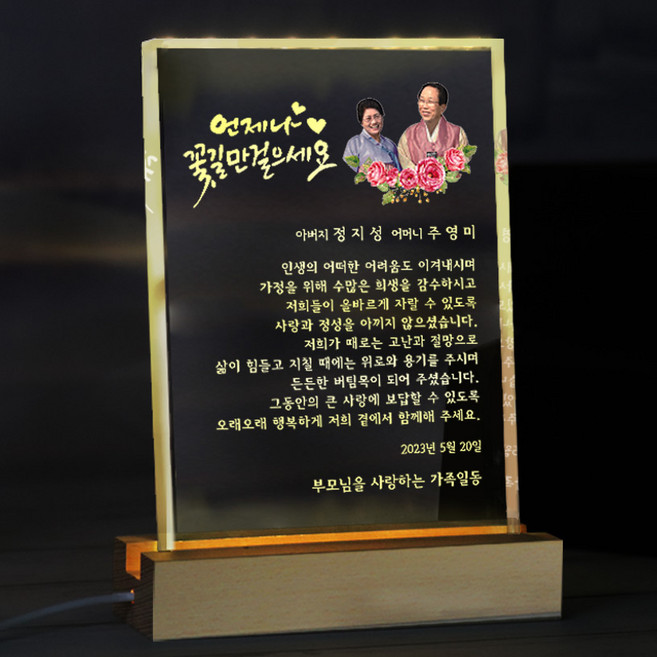 언제나
꽃길만걸으세요
아버지 정지성 어머니 주영미
인생의 어떠한 어려움도 이겨내시며
가정을 위해 수많은 희생을 감수하시고
저희들이 올바르게 자랄 수 있도록
사랑과 정성을 아끼지 않으셨습니다.
저희가 때로는 고난과 절망으로
삶이 힘들고 지칠 때에는 위로와 용기를 주시며
든든한 버팀목이 되어 주셨습니다.
그동안의 큰 사랑에 보답할 수 있도록
오래오래 행복하게 저희 곁에서 함께해 주세요.
2023년 5월 20일
부모님을 사랑하는 가족일동